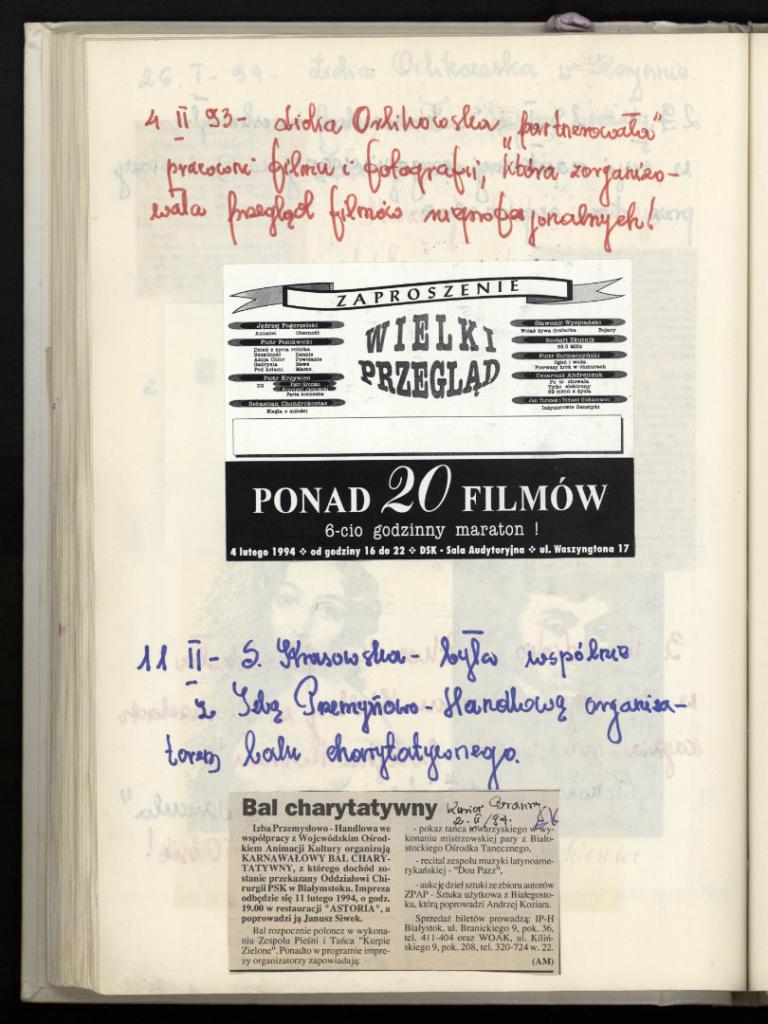 4 II 93 - Lidia Orlikowska "partnerowała"
pracowni filmu i fotografii, która zorganizo-
wała przegląd filmów nieprofesjonalnych!
ZAPROSZENIE
WIELKI
PRZEGLĄD
Jędrzej Pogorzelski
Annabel Obecność
Piotr Ponikwicki
Dzień z życia rolnika
Piotr Krzywiec
Sebastian Chondrokostas
Elegia o miłości
Sławomir Wyspiański
Wciąż żywa drukarka Bojary
Norbert Skutnik
69,5 MHz
Piotr Sarmaczyński
Ogień i woda
Pierwszy krok w chmurach
Cezariusz Andrejczuk
Po to chowała
Tylko elektrony
60 minut z życia
Inżynierowie Genetyki
PONAD 20 FILMÓW
6-cio godzinny maraton !
4 lutego 1994 ❖ od godziny 16 do 22 ❖ DSK - Sala Audytoryjna ❖ ul. Waszyngtona 17
11 II - S. Krasowska - była wspólnie
z Izbą Przemysłowo - Handlową organiza-
torem balu charytatywnego.
Bal charytatywny Kurier Poranny
2. II/94.
Izba Przemysłowo - Handlowa we
współpracy z Wojewódzkim Ośrod-
kiem Animacji Kultury organizują
KARNAWAŁOWY BAL CHARY-
TATYWNY, z którego dochód zo-
stanie przekazany Oddziałowi Chi-
rurgii PSK w Białymstoku. Impreza
odbędzie się 11 lutego 1994, o godz.
19.00 w restauracji "ASTORIA", a
poprowadzi ją Janusz Siwek.
Bal rozpocznie polonez w wykona-
niu Zespołu Pieśni i Tańca "Kurpie
Zielone". Ponadto w programie impre-
zy organizatorzy zapowiadają:
- pokaz tańca towarzyskiego w wy-
konaniu mistrzowskiej pary z Biało-
stockiego Ośrodka Tanecznego,
- recital zespołu muzyki latynoame-
rykańskiej - "Dou Pazz",
- aukcję dzieł sztuki ze zbioru autorów
ZPAP - Sztuka użytkowa z Białegosto-
ku, którą poprowadzi Andrzej Koziara.
Sprzedaż biletów prowadzą: IP-H
Białystok, ul. Branickiego 9, pok. 36,
tel. 411-404 oraz WOAK, ul. Kiliń-
skiego 9, pok. 208, tel. 320-724 w. 22.
(AM)